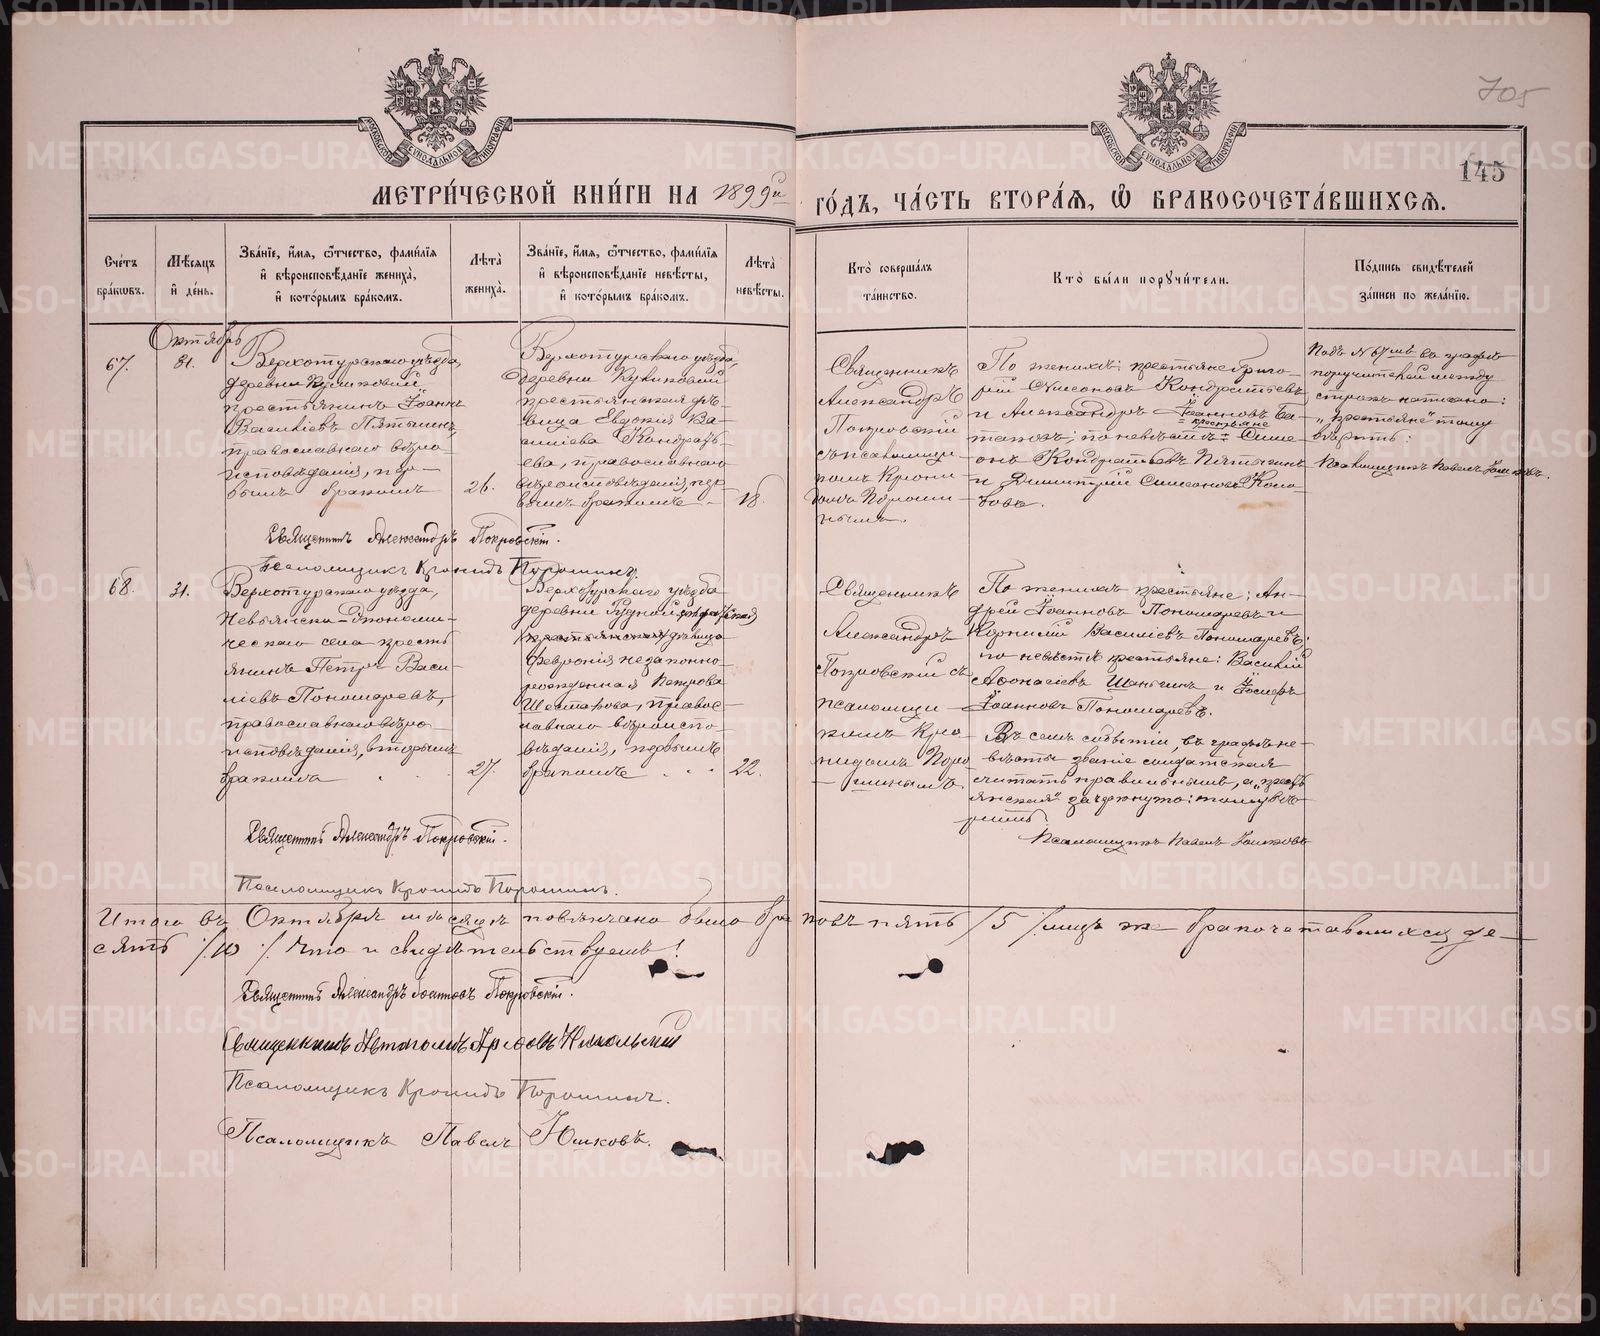 705
145
МЕТРИ́ЧЕСКОЙ КНИ́ГИ НА 1899й
ГО́ДЪ, ЧА́СТЬ ВТОРА́Я, Ѿ БРАКОСОЧЕТА́ВШИХСЯ.
Сче́тъ бра́кѡвъ.
Мѣ́сяцъ и҆ де́нь.
Зва́нїе, и҆́мя, ѻ҆́тчество, фами́лїя и҆ вѣроисповѣ́данїе жениха̀, и҆ кото́рымъ бра́комъ.
Лѣ́та жениха̀.
Зва́нїе, и҆́мя, ѻ҆́тчество, фами́лїя и҆ вѣроисповѣ́данїе невѣ́сты, и҆ кото́рымъ бра́комъ.
Лѣ́та невѣ́сты.
Кто̀ соверша́лъ та́инство.
Кто̀ бы́ли порꙋчи́тели.
По́дпись свидѣ́телей за́писи по жела́нїю.
Октябрь
67.
31.
Верхотурскаго уѣзда,
деревни
крестьянинъ Іоаннъ
Василіевъ Пятыгинъ,
православнаго вѣро-
исповѣданія, пер-
вымъ бракомъ
26.
Верхотурскаго уѣзда,
деревни Куликовой
крестьянская дѣ-
вица Евдокія Ва-
силіева Кондрать-
ева, православнаго
вѣроисповѣданія, пер-
вымъ бракомъ
18.
Священникъ
Александръ
Покровскій
съ псаломщи-
комъ Крони-
домъ Пороши-
нымъ.
По женихѣ: крестьяне Григо-
рій Симеоновъ Кондратьевъ
и Александръ Іоанновъ Ба-
крестьяне
; по невѣстѣ: Симе-
онъ Кондратьевъ Пятыгинъ
и Димитрій Симеоновъ
Подъ № 67мъ въ графѣ
поручителей между
строкъ написано:
„крестьяне" тому
вѣрить:
Псаломщикъ Павелъ Юшковъ.
Священникъ Александръ Покровскій.
Псаломщикъ Кронидъ Порошинъ.
68.
31.
Верхотурскаго уѣзда,
Невьянско-Экономи-
ческаго села кресть-
янинъ Петръ Васи-
ліевъ Пономаревъ,
православнаго вѣро-
исповѣданія, вторымъ
бракомъ
27.
Верхотурскаго уѣзда
деревни Рудной солдатская
крестьянская дѣвица
Февронія незаконно-
рожденная Петрова
Шестакова, правос-
лавнаго вѣроиспо-
вѣданія, первымъ
бракомъ
22.
Священникъ
Александръ
Покровскій съ
псаломщи-
комъ Кро-
нидомъ Поро-
шинымъ
По женихѣ крестьяне: Ан-
дрей Іоанновъ Пономаревъ и
Корнилій Василіевъ Пономаревъ;
по невѣстѣ крестьяне: Василій
Аѳонасіевъ Шаньгинъ и Іосифъ
Іоанновъ Пономаревъ.
Въ семъ событіи, въ графѣ не-
вѣсты званіе солдатская
считать правильнымъ, а „кресть-
янская" зачеркнуто: тому вѣ-
рить
Псаломщикъ Павелъ Юшковъ
Священникъ Александръ Покровскій.
Псаломщикъ Кронидъ Порошинъ.
Итого въ Октябрѣ мѣсяцѣ повѣнчано было браковъ пять /5/ лицъ же бракочетавшихся де-
сять /10/. Что и свидѣтельствуемъ!
Священникъ Александръ Іоанновъ Покровскій.
Псаломщикъ Кронидъ Порошинъ.
Псаломщикъ Павелъ Юшковъ.
METRIKI.GASO-URAL.RU